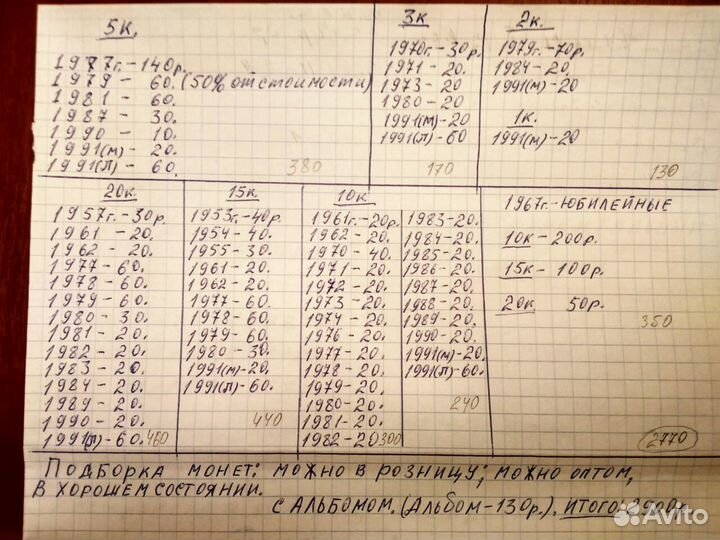 5к.
1977г. - 140р.
1979 - 60. (50% от стоимости)
1981 - 60.
1987 - 30.
1990 - 10.
1991(м) - 20.
1991(л) - 60.
380
3к
1970г. - 30р.
1971 - 20.
1973 - 20
1980 - 20
1991(м) - 20
1991(л) - 60
170
2к.
1979г. - 70р.
1984 - 20.
1991(м) - 20
1к.
1991(м) - 20
130
20к.
1957г. - 30р.
1961 - 20.
1962 - 20.
1977 - 60.
1978 - 60.
1979 - 60.
1980 - 30.
1981 - 20.
1982 - 20.
1983 - 20.
1984 - 20.
1989 - 20.
1990 - 20.
1991(л) - 60. 460
15к.
1953г. - 40р.
1954 - 40.
1955 - 30.
1961 - 20.
1962 - 20.
1977 - 60.
1978 - 60.
1979 - 60.
1980 - 30.
1991(м) - 20.
1991(л) - 60.
440
10к
1961г. - 20р.
1962 - 20.
1970 - 40.
1971 - 20.
1972 - 20.
1973 - 20.
1974 - 20.
1976 - 20.
1977 - 20.
1978 - 20.
1979 - 20.
1980 - 20.
1981 - 20.
1982 - 20 300
1983 - 20.
1984 - 20.
1985 - 20.
1986 - 20.
1987 - 20.
1988 - 20.
1989 - 20.
1990 - 20.
1991(м) - 20.
1991(л) - 60.
240
1967г. - ЮБИЛЕЙНЫЕ
10к - 200р.
15к - 100р.
20к 50р.
350
2770
ПОДБОРКА МОНЕТ: МОЖНО В РОЗНИЦУ; МОЖНО ОПТОМ,
В ХОРОШЕМ СОСТОЯНИИ.
С АЛЬБОМОМ. (АЛЬБОМ - 130р.). ИТОГО: 2900р.
Avito